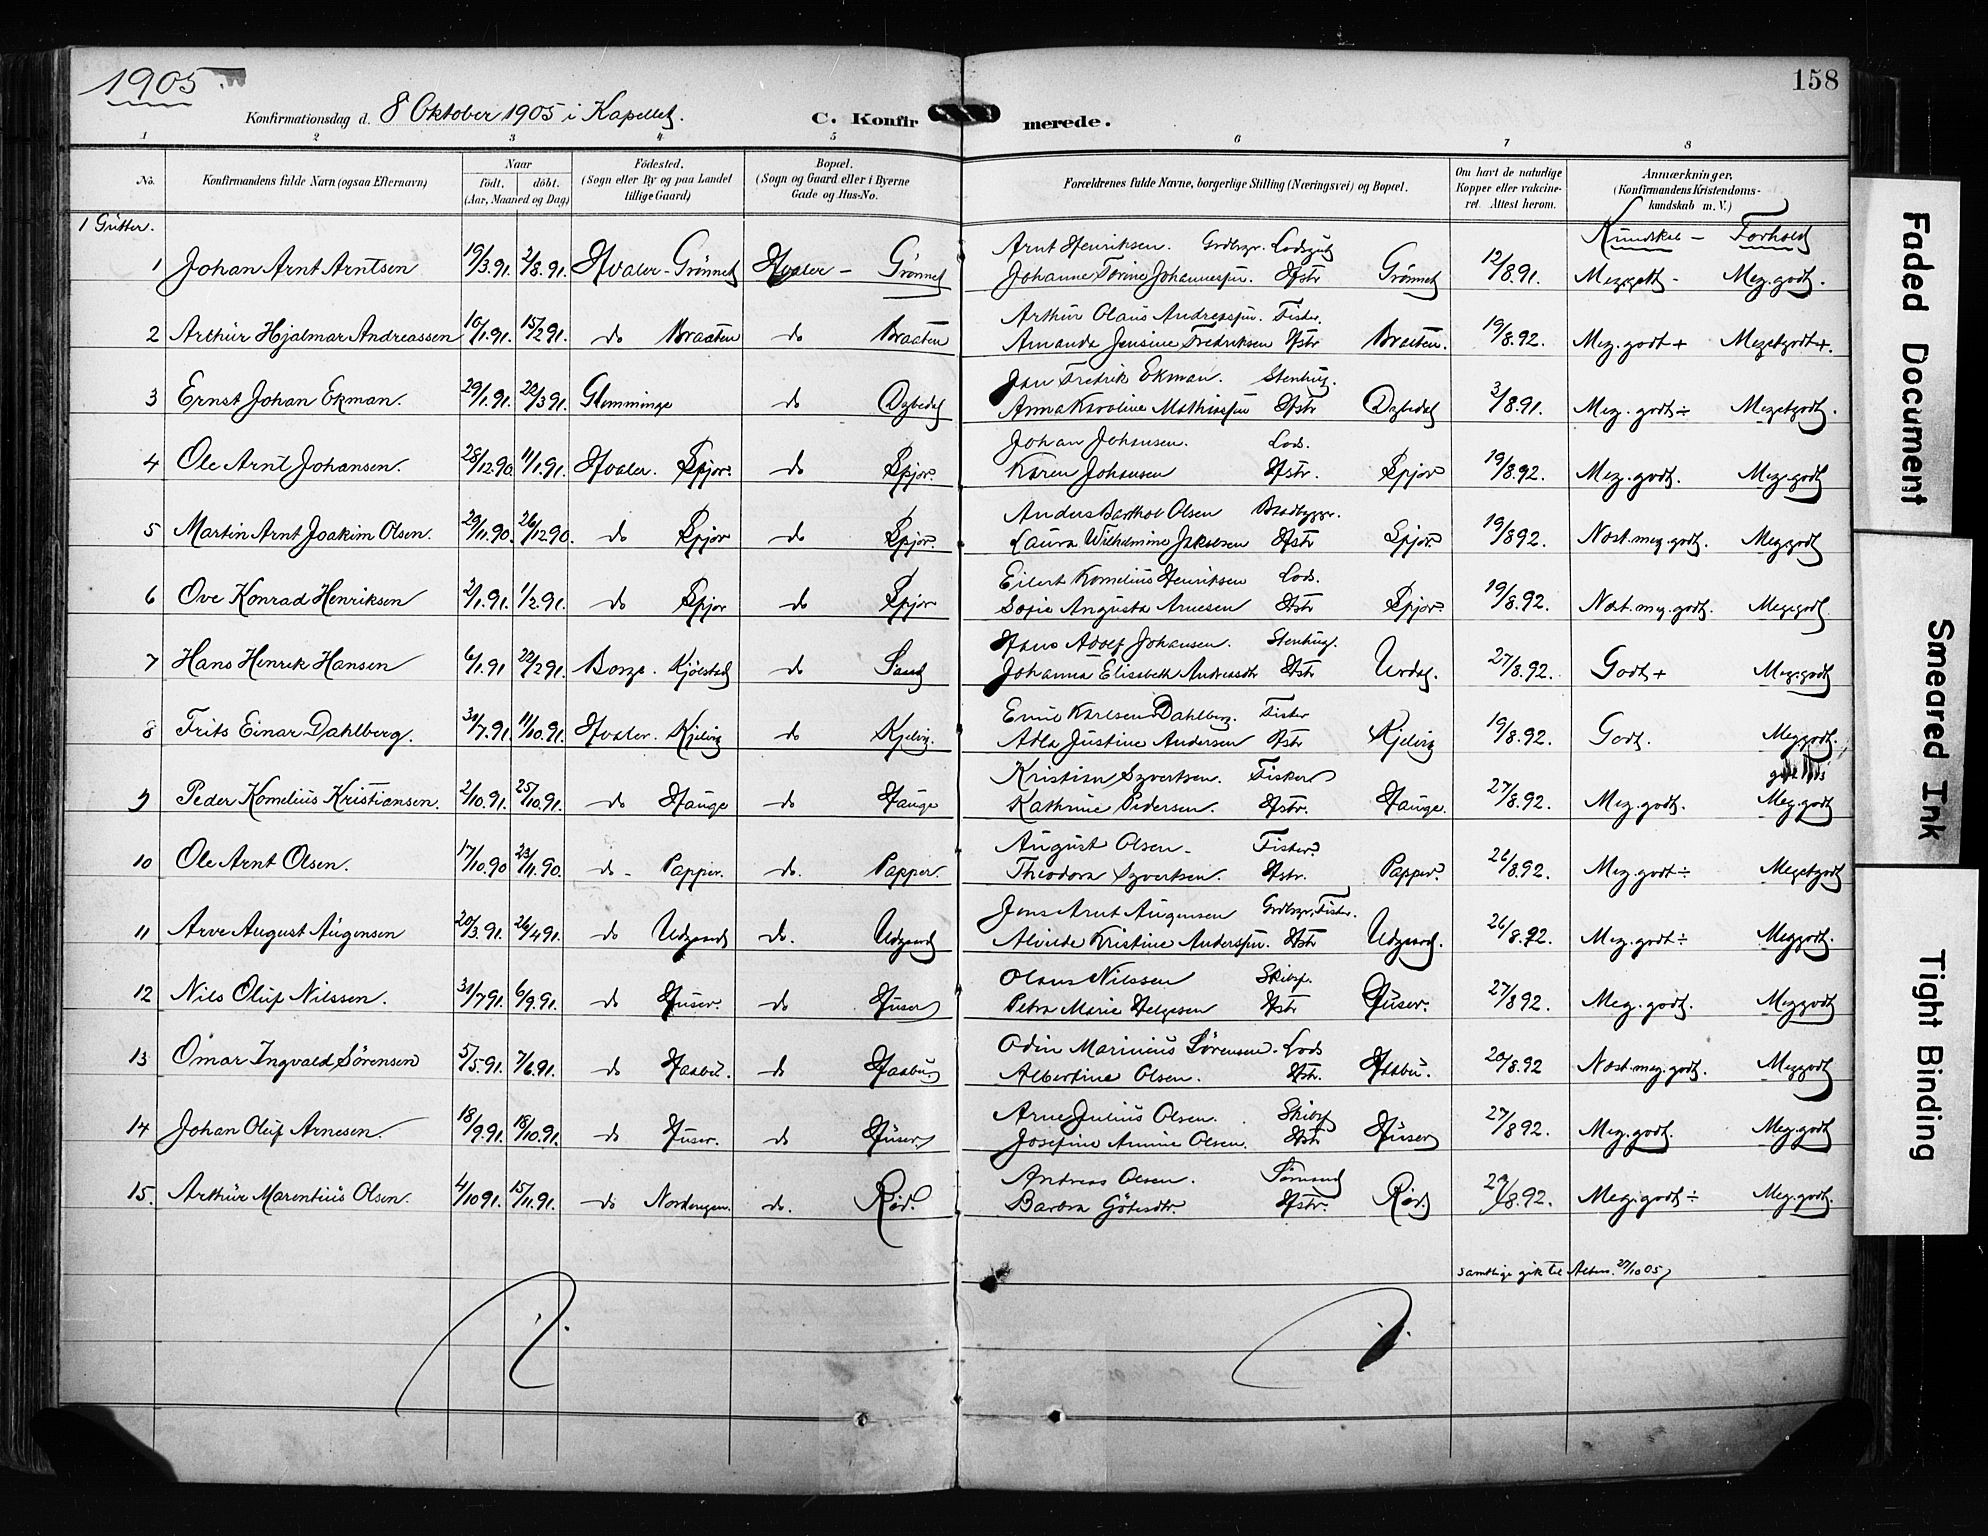 1905
158
Konfirmationsdag d. 8 Oktober 1905 i Kapellet.
C. Konfirmerede.
1 2 3 4 5 6 7 8
No. Konfirmandens fulde Navn (ogsaa Efternavn) Naar födt. döbt. (Aar, Maaned og Dag) Födested. (Sogn eller By og paa Landet tillige Gaard) Bopæl. (Sogn og Gaard eller i Byerne Gade og Hus-No. Forældrenes fulde Navne, borgerlige Stilling (Næringsvei) og Bopæl. Om havt de naturlige Kopper eller vakcineret. Attest herom. Anmærkninger. (Konfirmandens Kristendomskundskab m. V.)
1 Gutter.
Kundskab - Forhold
1 Johan Arnt Arntsen 19/3.91. 2/8.91. Hvaler - Grönnet Hvaler - Grönnet Arnt Henriksen. Grdbrgr. Lodsgut
Johanne Torine Johannessen. Hstr Grönnet 12/8.91. Meg.godt - Meg.godt.
2 Arthur Hjalmar Andreassen 10/1.91. 15/2.91. do Braaten do Braaten Arthur Olaus Andreassen. Fisker.
Amanda Jensine Fredriksen Hstr Braaten. 19/8.92. Meg.godt + Megetgodt+.
3 Ernst Johan Ekman. 29/1.91. 22/3.91. Glemminge do Dybedal Jan Fredrik Ekman. Stenhug.
Anna Karoline Mathissen Hstr Dybedal 3/8.91. Meg.godt ÷ Megetgodt.
4 Ole Arnt Johansen. 28/12.90. 11/1.91. Hvaler. Spjær. do Spjær. Johan Johansen. Lods.
Karen Johansen Hstr. Spjær 19/8.92. Meg.godt. Meg.godt
5 Martin Arnt Joakim Olsen. 29/11.90. 26/12.90. do Spjær do Spjær. Anders Barthol Olsen Baadbygger.
Laura Wilhelmine Jakobsen Hstr Spjær. 19/8.92. Næst.meg.godt. Meg.godt
6 Ove Konrad Henriksen 2/1.91. 1/2.91. do Spjær do Spjær Eilert Kornelius Henriksen Lods.
Sofie Augusta Arnesen Hstr Spjær 19/8.92. Næst.meg.godt. Meg.godt.
7 Hans Henrik Hansen 6/1.91 22/2.91. Borge. Kjölstad do Sand Hans Adolf Johansen. Stenhug.
Johanna Elisabeth Andreasdtr Hstr Urdal. 27/8.92. Godt + Meg.godt
8 Frits Einar Dahlberg. 31/7.91. 11/10.91. Hvaler. Kjelvig do Kjelvig. Emil Karlsen Dahlberg. Fisker
Adla Justine Andersen Hstr Kjelvig 19/8.92. Godt. Meg.godt.
9 Peder Kornelius Kristiansen. 2/10.91. 25/10.91. do Hauge do Hauge Kristian Syvertsen. Fisker
Kathrine Pedersen. Hstr. Hauge. 27/8.92. Meg.godt. Meg.godt
10 Ole Arnt Olsen. 17/10.90 23/11.90. do - Papper. do. Papper. August Olsen - Fisker.
Theodora Syvertsen. Hstr. Papper. 26/8.92. Meg.godt ÷ Megetgodt
11 Arve August Augensen 20/3.91. 26/4.91. do Udgaard do. Udgaard Jens Arnt Augensen Grdbrgr, Fisker.
Alvilde Kristine Anderssen. Hstr Udgaard. 26/8.92. Meg.godt ÷ Meg.godt.
12 Nils Oluf Nilssen. 31/7.91. 6/9.91. do Huser. do Huser Olaus Nilssen Skibsf.
Petra Marie Helgesen Hstr Huser. 27/8.92. Meg.godt. Meg.godt
13 Omar Ingvald Sörensen 5/5.91. 7/6.91. do Haabu. do Haabu. Odin Marinius Sörensen. Lods
Albertine Olsen. Hstr. Haabu. 20/8.92 Næst.meg.godt. Meg.godt
14 Johan Oluf Arnesen. 18/9.91. 18/10.91. do Huser. do Huser Arne Julius Olsen. Skibsf
Josefine Amine Olsen. Hstr Huser 27/8.92. Meg.godt. Meg.godt
15. Arthur Marentius Olsen. 4/10.91. 15/11.91. do Nordengen. do. Röd. Andreas Olsen. Sömand
Barbra Götesdtr Hstr. Röd 29/8.92. Meg.godt ÷ Meg.godt.
Samtlige gik til Alters. 29/10 05
Faded Document
Smeared Ink
Tight Binding